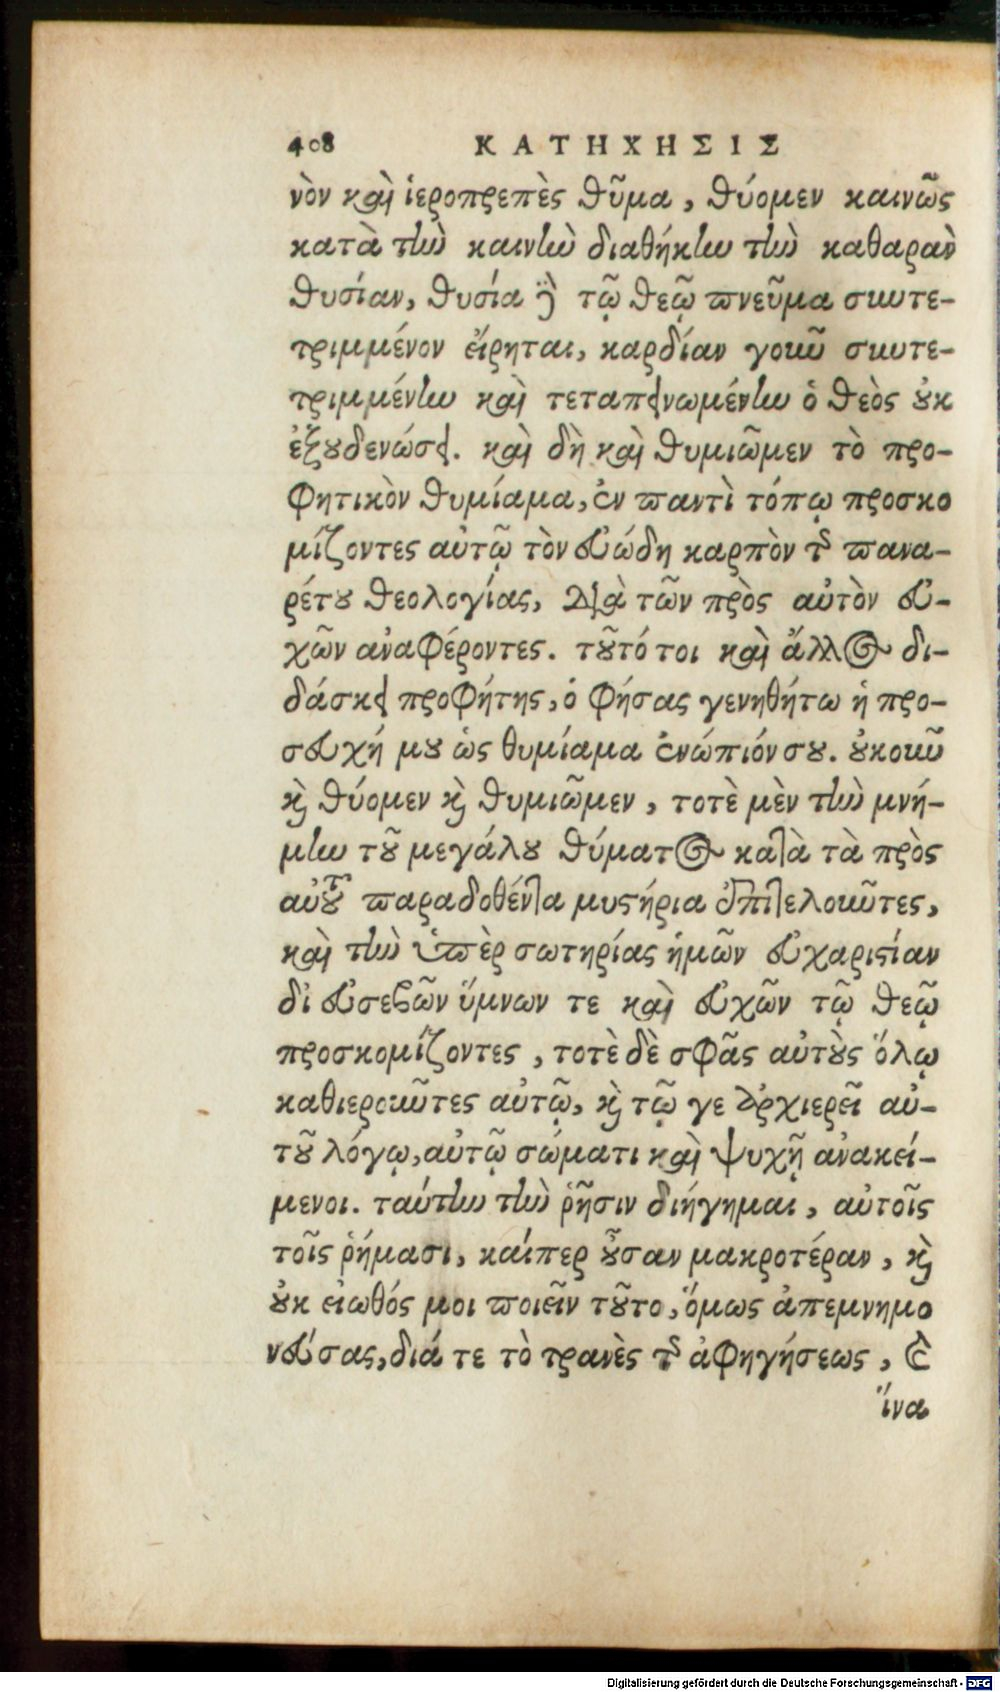 408 ΚΑΤΗΧΗΣΙΣ
νὸν καὶ ἱεροπρεπὲς θῦμα, θύομεν καινῶς
κατὰ τὴν καινὴν διαθήκην τὴν καθαρὰν
θυσίαν, θυσία δὲ τῷ θεῷ πνεῦμα συντε-
τριμμένον εἴρηται, καρδίαν γοῦν συντε-
τριμμένην καὶ τεταπεινωμένην ὁ θεὸς οὐκ
ἐξουδενώσει. καὶ δὴ καὶ θυμιῶμεν τὸ προ-
φητικὸν θυμίαμα, ἐν παντὶ τόπῳ προσκο
μίζοντες αὐτῷ τὸν εὐώδη καρπὸν τῆς πανα-
ρέτου θεολογίας, διὰ τῶν πρὸς αὐτὸν εὐ-
χῶν ἀναφέροντες. τοῦτό τοι καὶ ἄλλος δι-
δάσκει προφήτης, ὁ φήσας γενηθήτω ἡ προ-
σευχή μου ὡς θυμίαμα ἐνώπιόν σου. οὐκοῦν
καὶ θύομεν καὶ θυμιῶμεν, τοτὲ μὲν τὴν μνή-
μην τοῦ μεγάλου θύματος κατὰ τὰ πρὸς
αὐτοῦ παραδοθέντα μυστήρια ἐπιτελοῦντες,
καὶ τὴν ὑπὲρ σωτηρίας ἡμῶν εὐχαριστίαν
δι εὐσεβῶν ὕμνων τε καὶ εὐχῶν τῷ θεῷ
προσκομίζοντες, τοτὲ δὲ σφᾶς αὐτοὺς ὅλῳ
καθιεροῦντες αὐτῷ, καὶ τῷ γε ἀρχιερεῖ αὐ-
τοῦ λόγῳ, αὐτῷ σώματι καὶ ψυχῇ ἀνακεί-
μενοι. ταύτην τὴν ῥῆσιν διήγημαι, αὐτοῖς
τοῖς ῥήμασι, καίπερ οὖσαν μακροτέραν, καὶ
οὐκ εἰωθός μοι ποιεῖν τοῦτο, ὅμως ἀπεμνημο
νεύσας, διά τε τὸ τρανὲς τῆς ἀφηγήσεως, καὶ
ἵνα
Digitalisierung gefördert durch die Deutsche Forschungsgemeinschaft - DFG